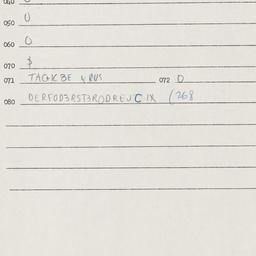 040
050 0
060 0
070 $
071 TACKBE YRUS 072 0
080 DERFOD3RST3RODREJCIX (268